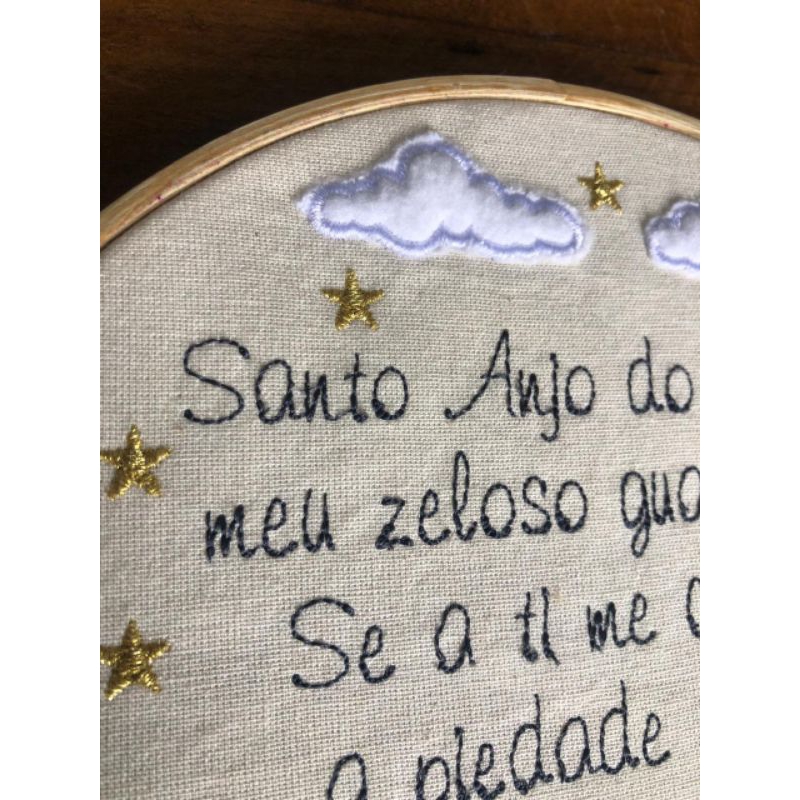 Santo Anjo do
meu zeloso gua
Se a ti me
a piedade